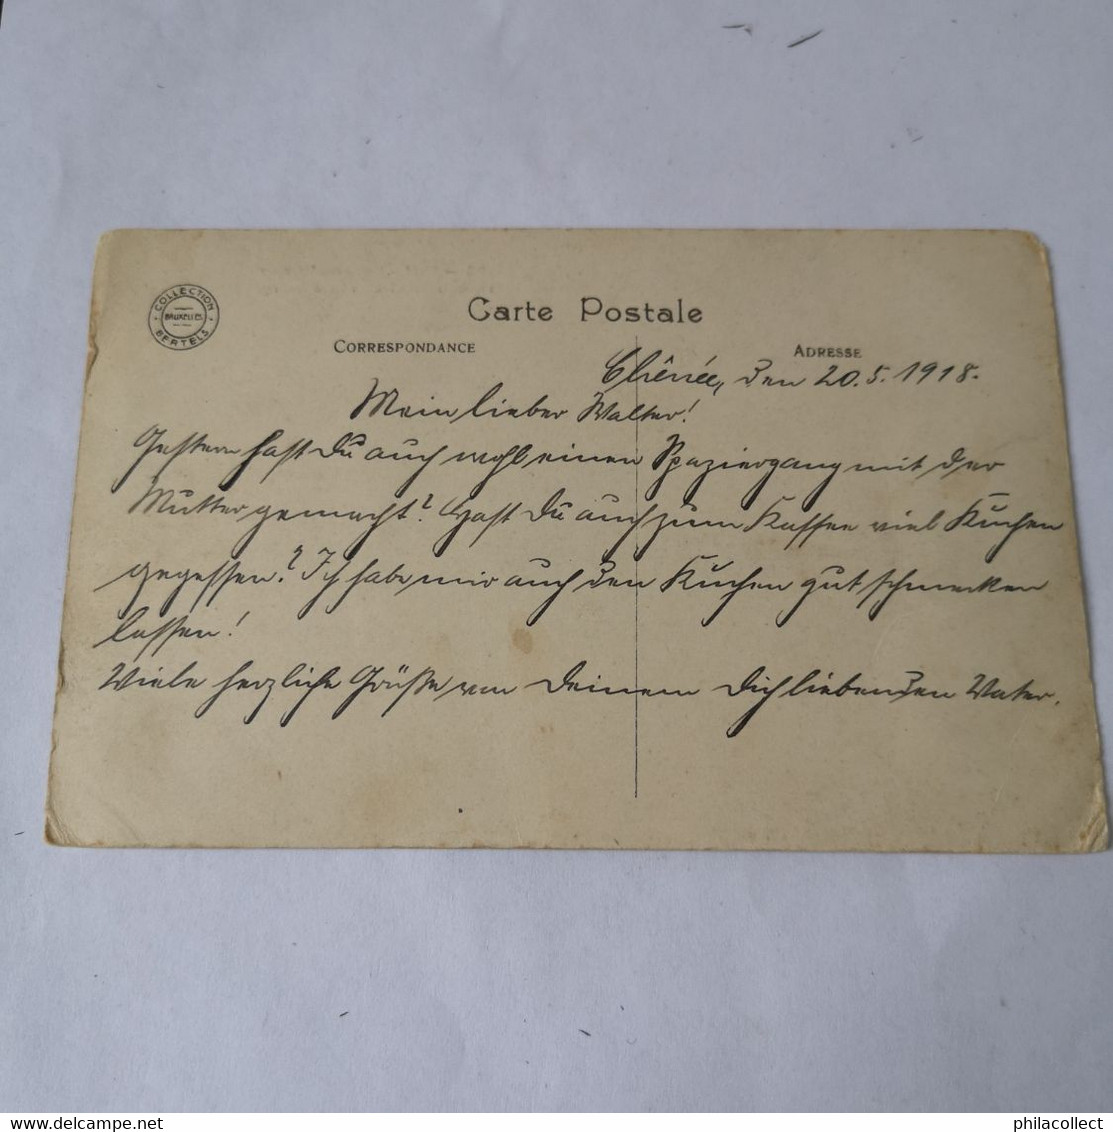 COLLECTION
BRUXELLES
BERTELS
Carte Postale
CORRESPONDANCE
ADRESSE
Chênée, den 20.5.1918.
Mein lieber Walter!
Gestern hast Du auch wohl einen Spaziergang mit der
Mutter gemacht? Hast Du auch zum Kaffee viel Kuchen
gegessen? Ich habe mir auch den Kuchen gut schmecken
lassen!
Viele herzliche Grüße von Deinem Dich liebenden Vater.
delcampe.net
philacollect